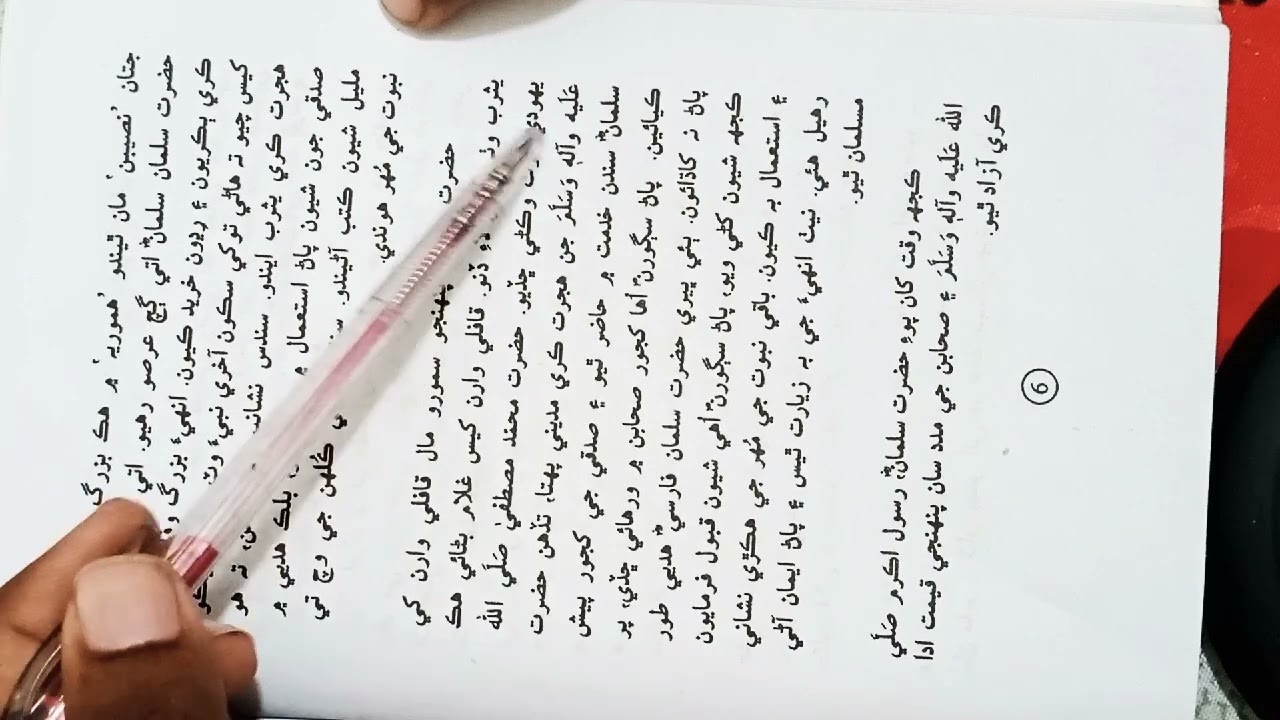 جتان ’نصيبين‘ مان ٿيندو ’همورية‘ ۾ هڪ بزرگ
حضرت سلمان سلمانؓ اتي ڳچ عرصو رهيو. اتي
ڪري ٻڪريون ۽ رڍون خريد ڪيون. انهيءَ بزرگ
کيس چيو ته هاڻي توکي سڪون آخري نبيءَ وٽ
هجرت ڪري يثرب ايندو. سندس ته هو
صدقي جون شيون پاڻ استعمال ۾ بلڪ هديي ۾
مليل شيون کتب آڻيندو. ڪُلهن جي وچ تي
نبوت جي مُهر هوندي.
حضرت پنهنجو سمورو مال قافلي وارن کي
يثرب ڏنو. قافلي وارن کيس غلام بڻائي هڪ
يهودي وڪڻي ڇڏيو. حضرت محمد مصطفيٰ صَلَي الله
عَليه وآلهٖ وَسَلَمَ جن هجرت ڪري مديني پهتا، تڏهن حضرت
سلمانؓ سندن خدمت ۾ حاضر ٿيو ۽ صدقي جي کجور پيش
ڪيائين. پاڻ سڳورنؐ اها کجور صحابن ۾ ورهائي ڇڏي، پر
پاڻ نه کاڌائون. ٻئي ڀيري حضرت سلمان فارسيؓ هديي طور
ڪجهه شيون کڻي ويو، پاڻ سڳورنؐ اهي شيون قبول فرمايون
۽ استعمال به ڪيون. باقي نبوت جي مُهر جي هڪڙي نشاني
رهيل هئي. نيٺ انهيءَ جي به زيارت ٿيس ۽ پاڻ ايمان آڻي
مسلمان ٿيو.
ڪجهه وقت کان پوءِ حضرت سلمانؓ، رسول اڪرم صَلَي
الله عَليه وآلهٖ وَسَلَمَ ۽ صحابن جي مدد سان پنهنجي قيمت ادا
ڪري آزاد ٿيو.
6